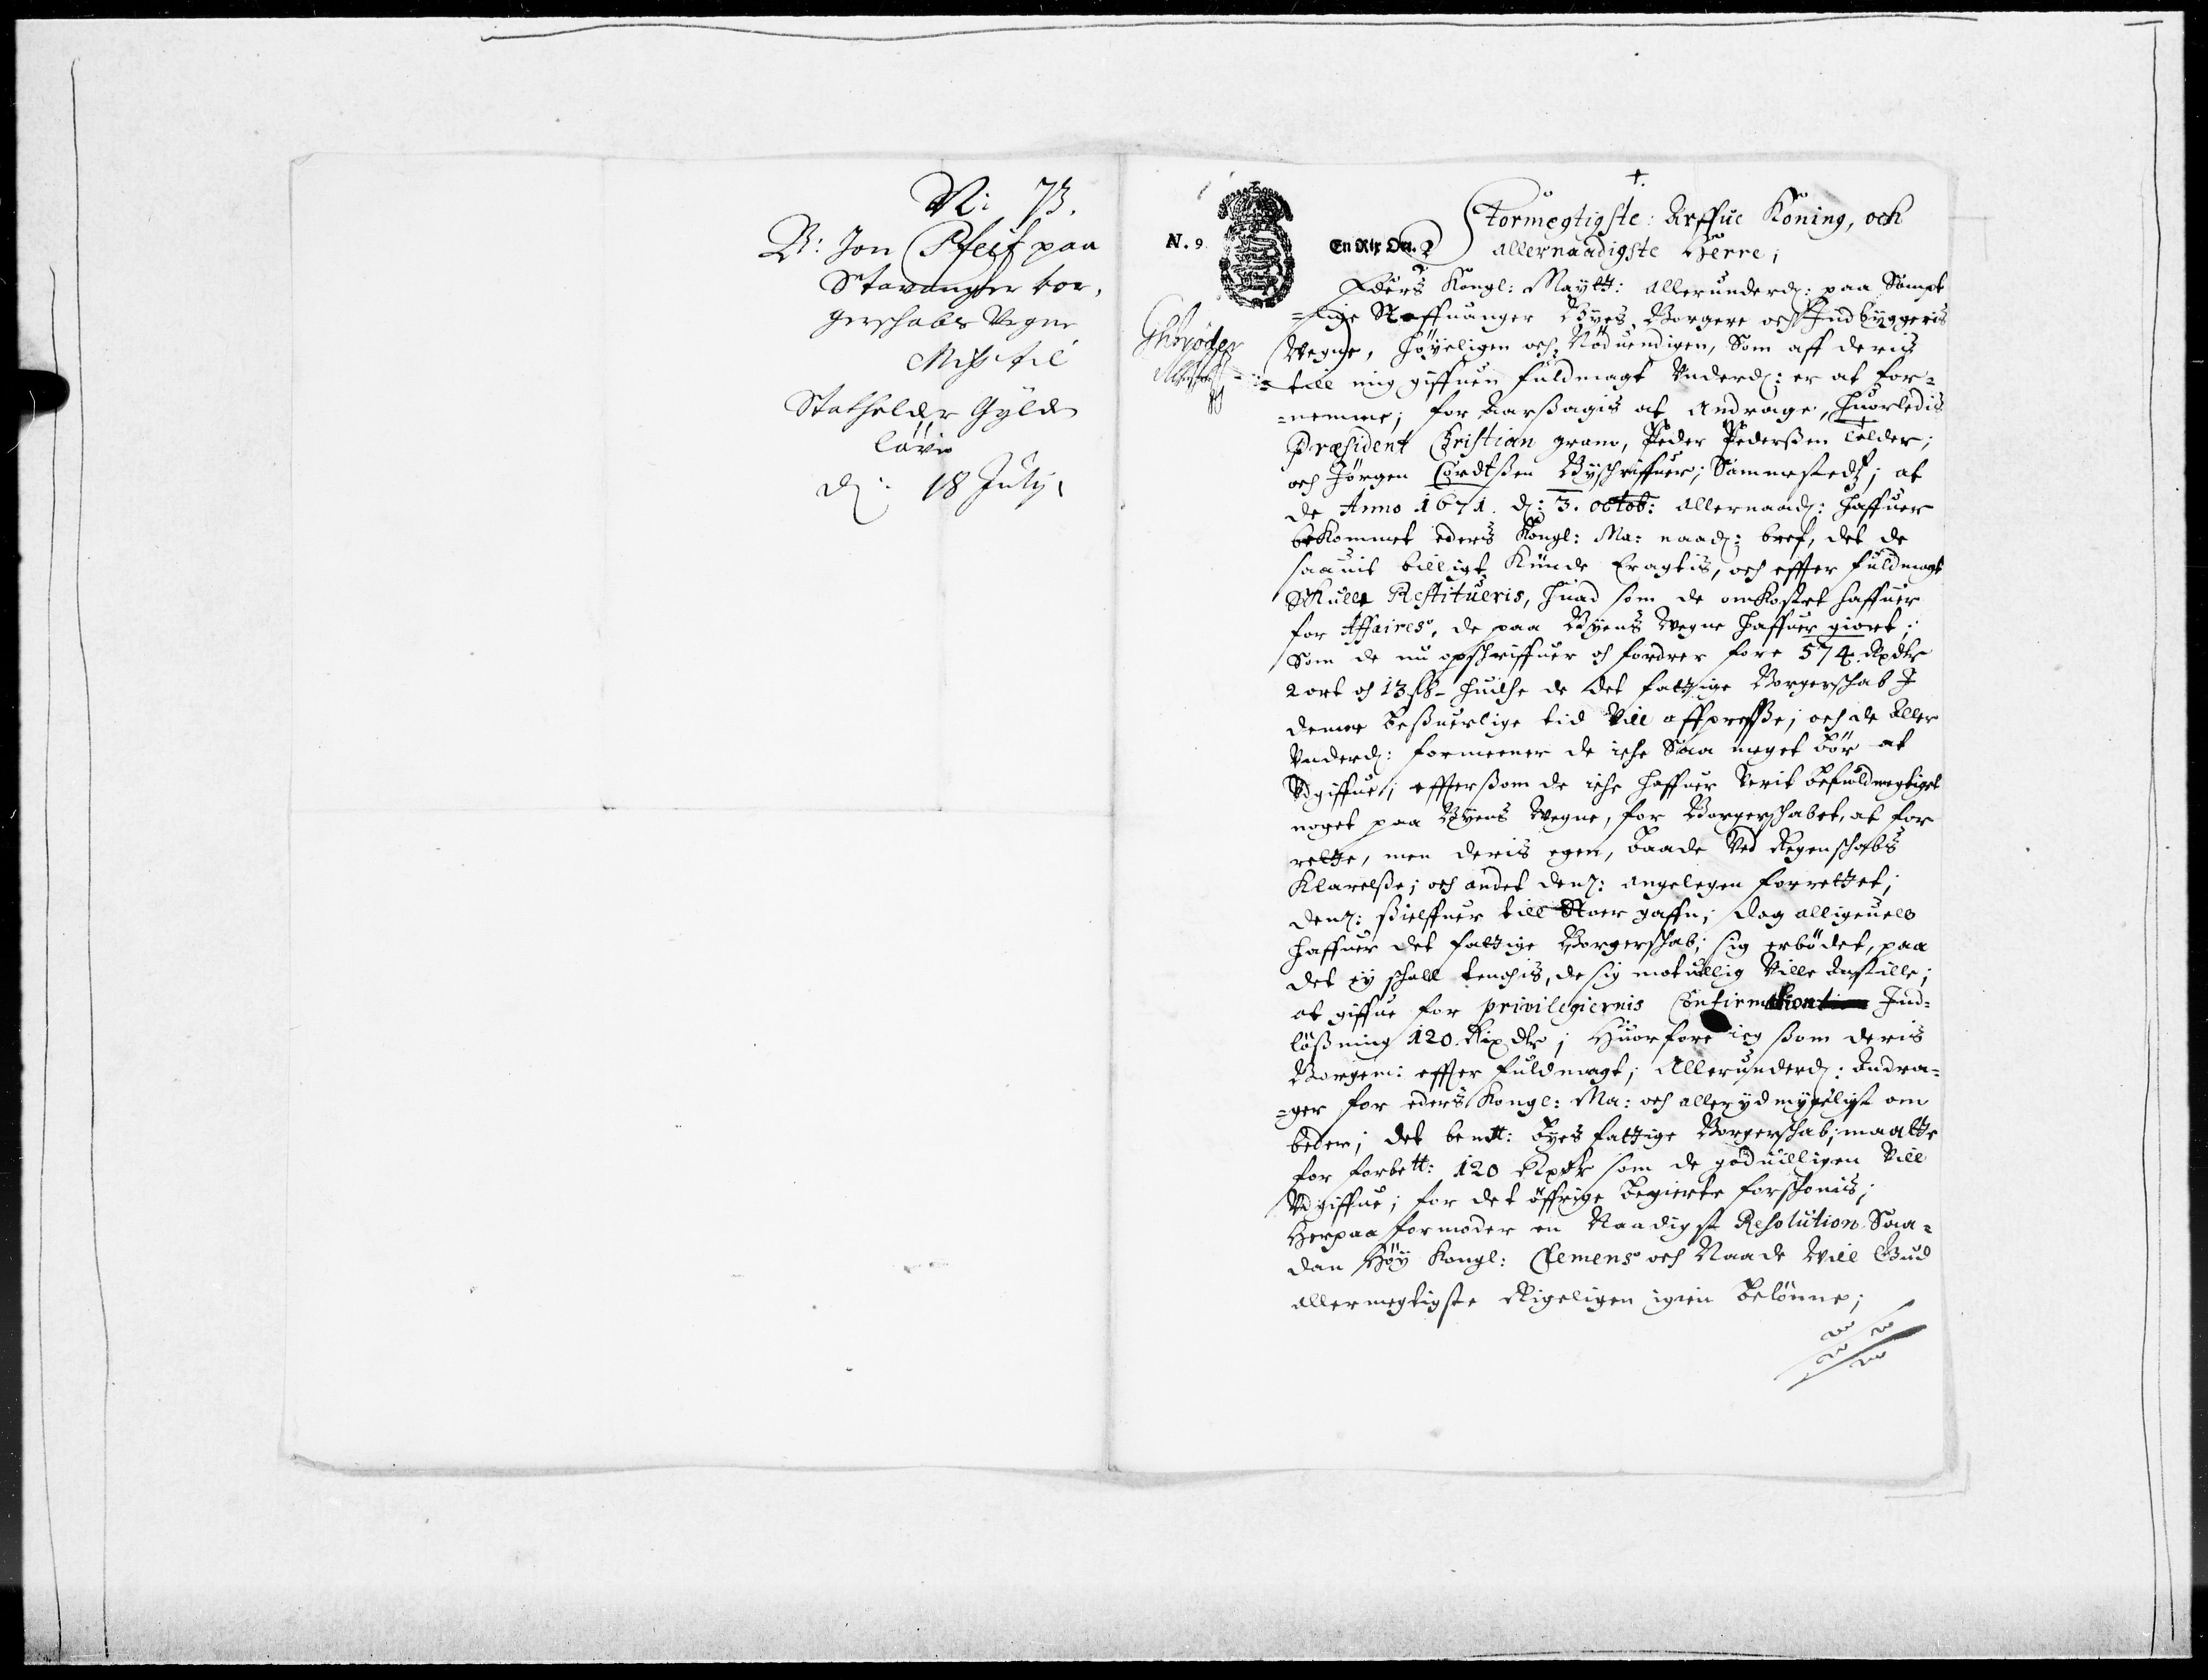 N: 73.
B: Jon Pfeif paa
Stavanger bor,
gerschabs Vegne
Miss til
Statholder Gylden
löve
d: 18 July.
+.
N. 9.
En Rix Ort. 2
Stormegtigste: Arffue Koning, och
allernaadigste Herre;
Eders Kongl: Maytt: allerunderd: paa Sampt
-lige Staffuanger Byes Borgere och Indbyggeris
Wegne, höyeligen och Nöduendigen, Som aff deris
till mig giffuen fuldmagt Underd: er at for-
-nemme; for aarßagis at andrage, huorledis
Præsident Christian gram, Peder Pederßen tolder;
och Jörgen Cordtßen Byschriffuer; Sammesteds; at
de Anno 1671. d: 3. octob: allernaad: haffuer
bekommet eders Kongl: Ma: naad: bref, det de
saauit billigt kunde Eragtis, och effter fuldmagt
Skulle Restitueris, huad som de omkostet haffuer
for Affaires, de paa Byens Wegne haffuer giort;
Som de nu opschriffuer och fordrer fore 574. Rxdlr
2 ort och 13 sk- huilche de det fattige Borgerschab I
denne beßuerlige tid Vill affpresse; och de aller
Underd: formeener de iche Saa meget bör at
Udgiffue; effterßom de iche haffuer Verit befuldmegtiget
noget paa Byens Wegne, for Borgerschabet, at for
rette, men deris egen, baade Ved Regenschabs
Klarelße; och andet den: angelegen forrettet,
den: sielffuer till Stoer gaffn; dog alligeuell
haffuer det fattige Borgerschab; sig erbödet, paa
det ey schall tenchis, de sig motuillig Ville anstille;
at giffue for privilegiernis Confirmation Ind-
lößning 120. Rixdlr; Huorfore ieg ßom deris
Borgem: effter fuldmagt; Allerunderd: andra-
-ger for eders Kongl: Ma: och allerydmygeligst om
beder; det bemt: byes fattige Borgerschab; maatte
for forbett: 120 Rxdlr som de goduilligen Vill
Udgiffue; for det öffrige begierte forschonis;
Herpaa formoder en Naadigst Resolution. Saa-
dan Höy Kongl: Clemens och Naade Will Gud
allermegtigste Rigeligen igien belönne;